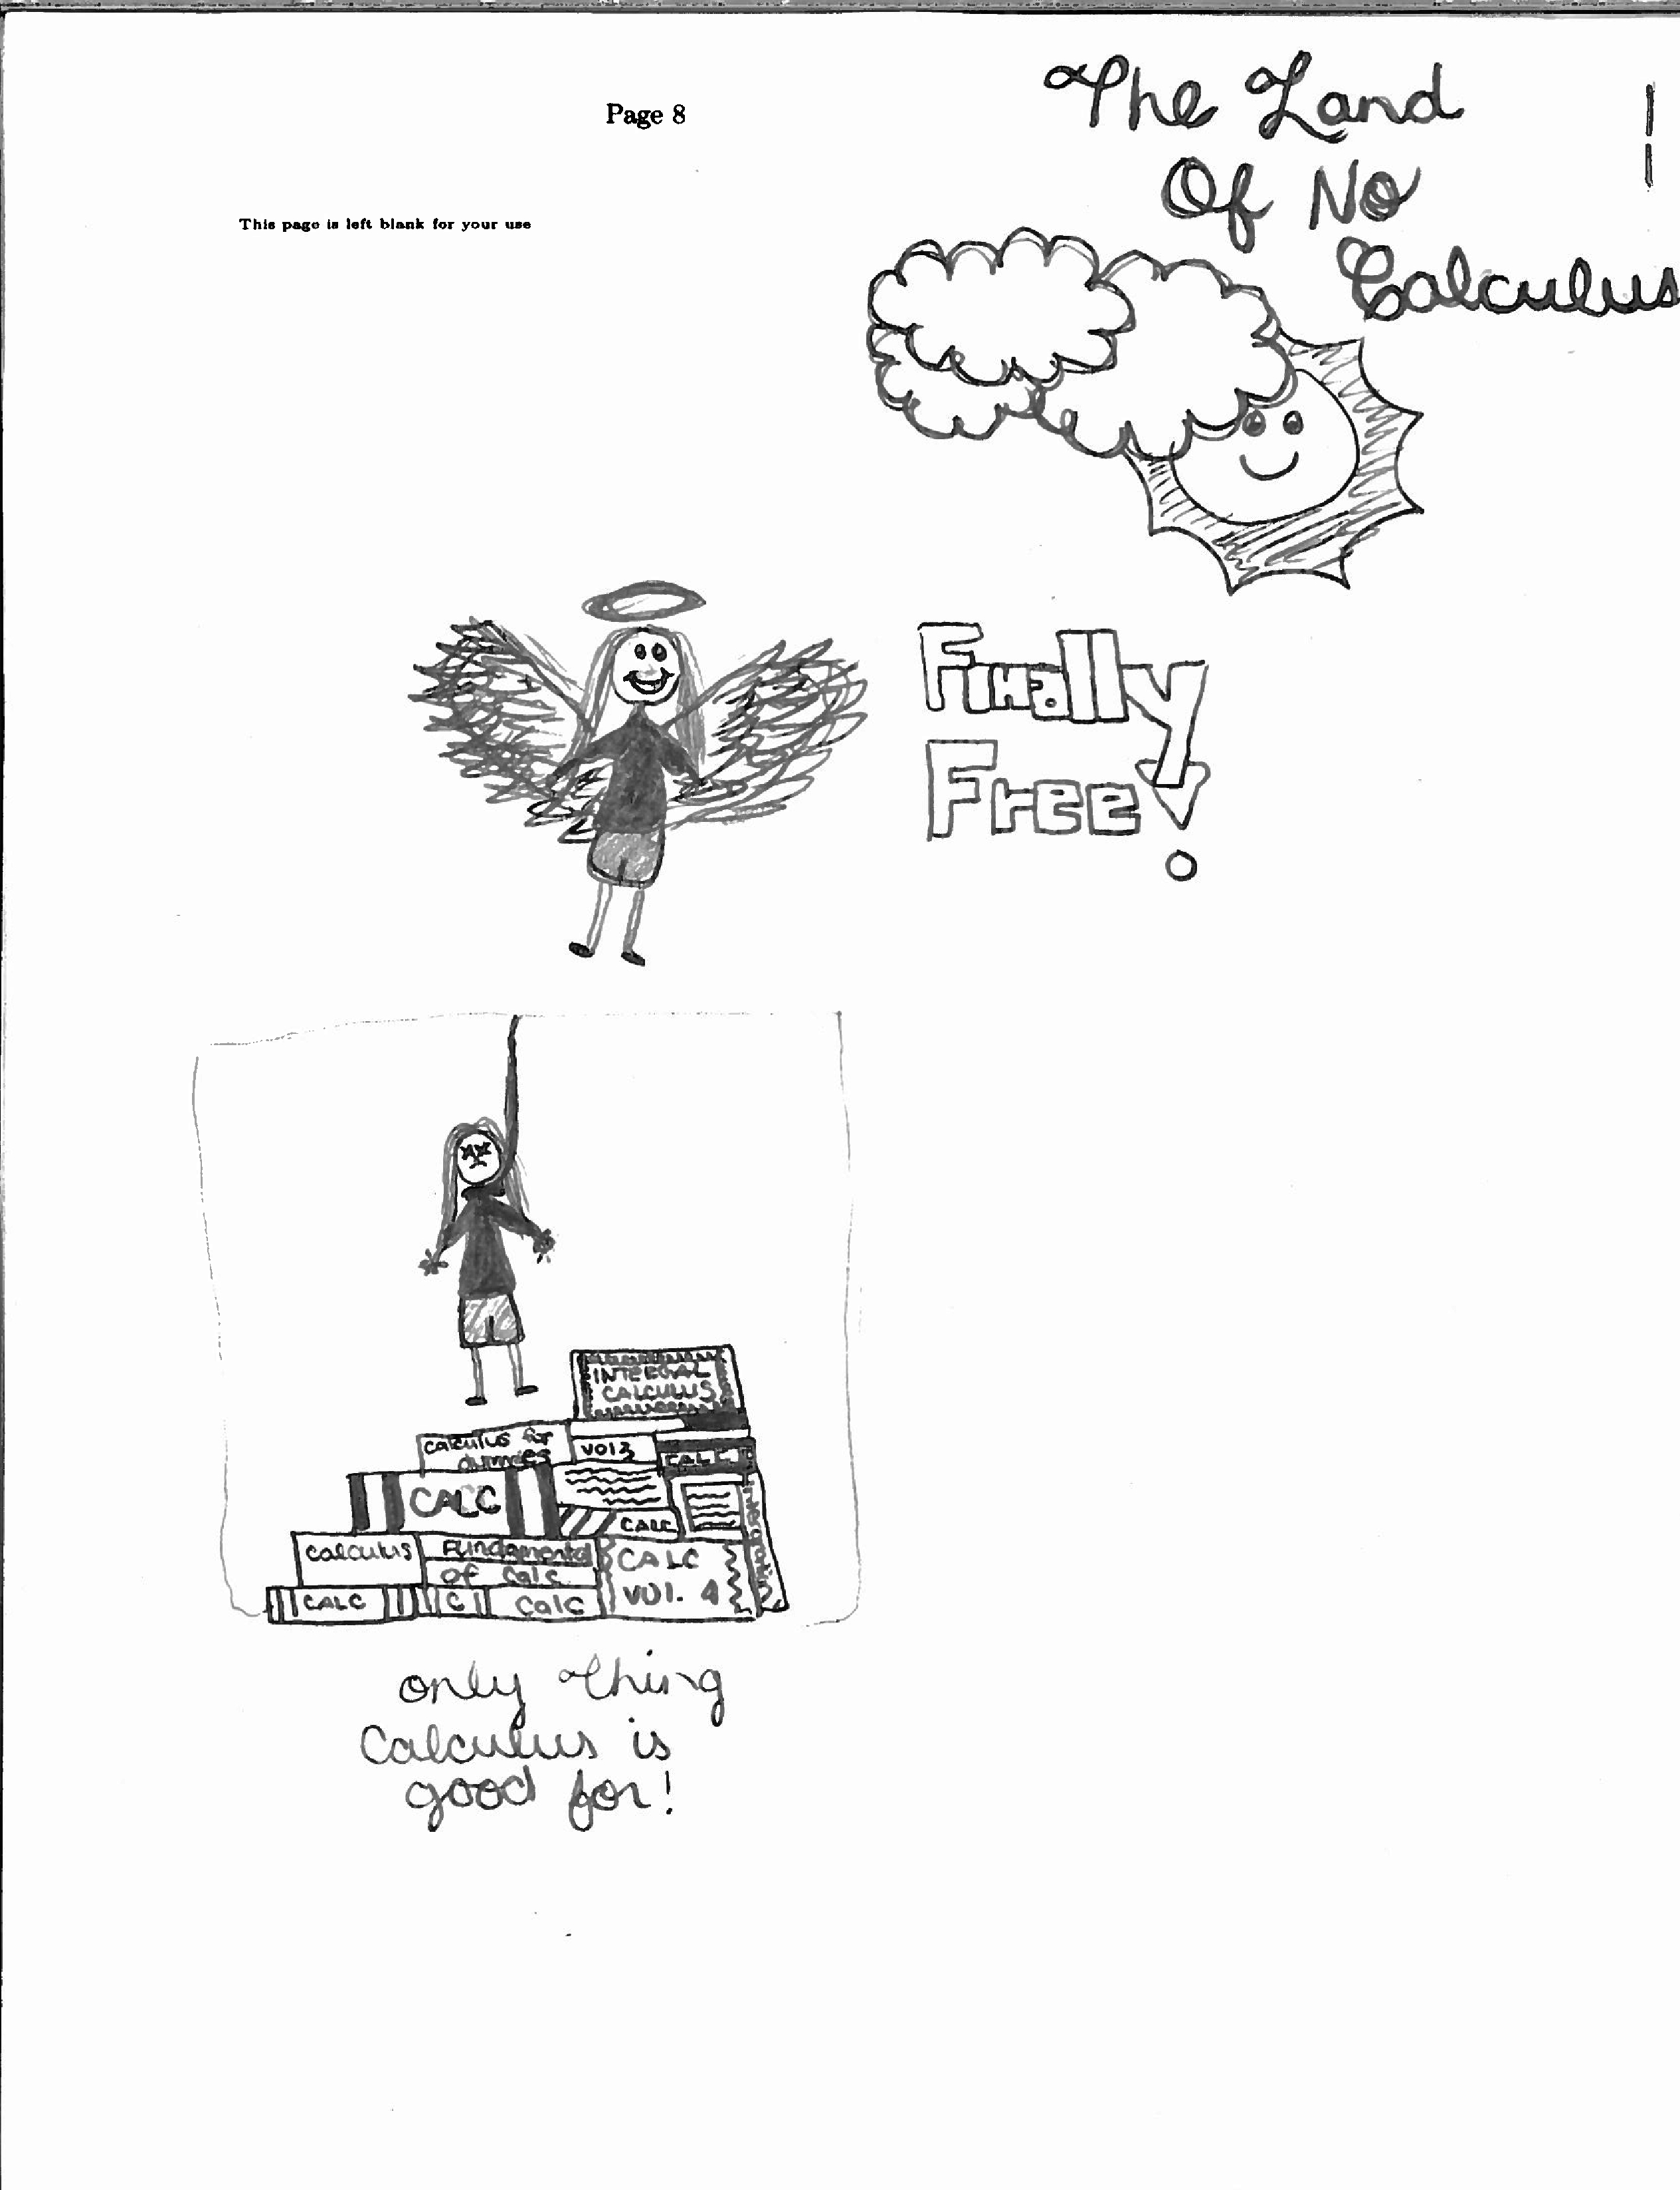 Page 8
This page is left blank for your use
The Land
Of No
Calculus
Finally
Free!
INTEGRAL
CALCULUS
calculus for
dummies
VOl 3
CALC
CALC
CALC
calculus
Fundamental
of Calc
CALC
VOl. 4
CALC
C
Calc
only thing
Calculus is
good for!